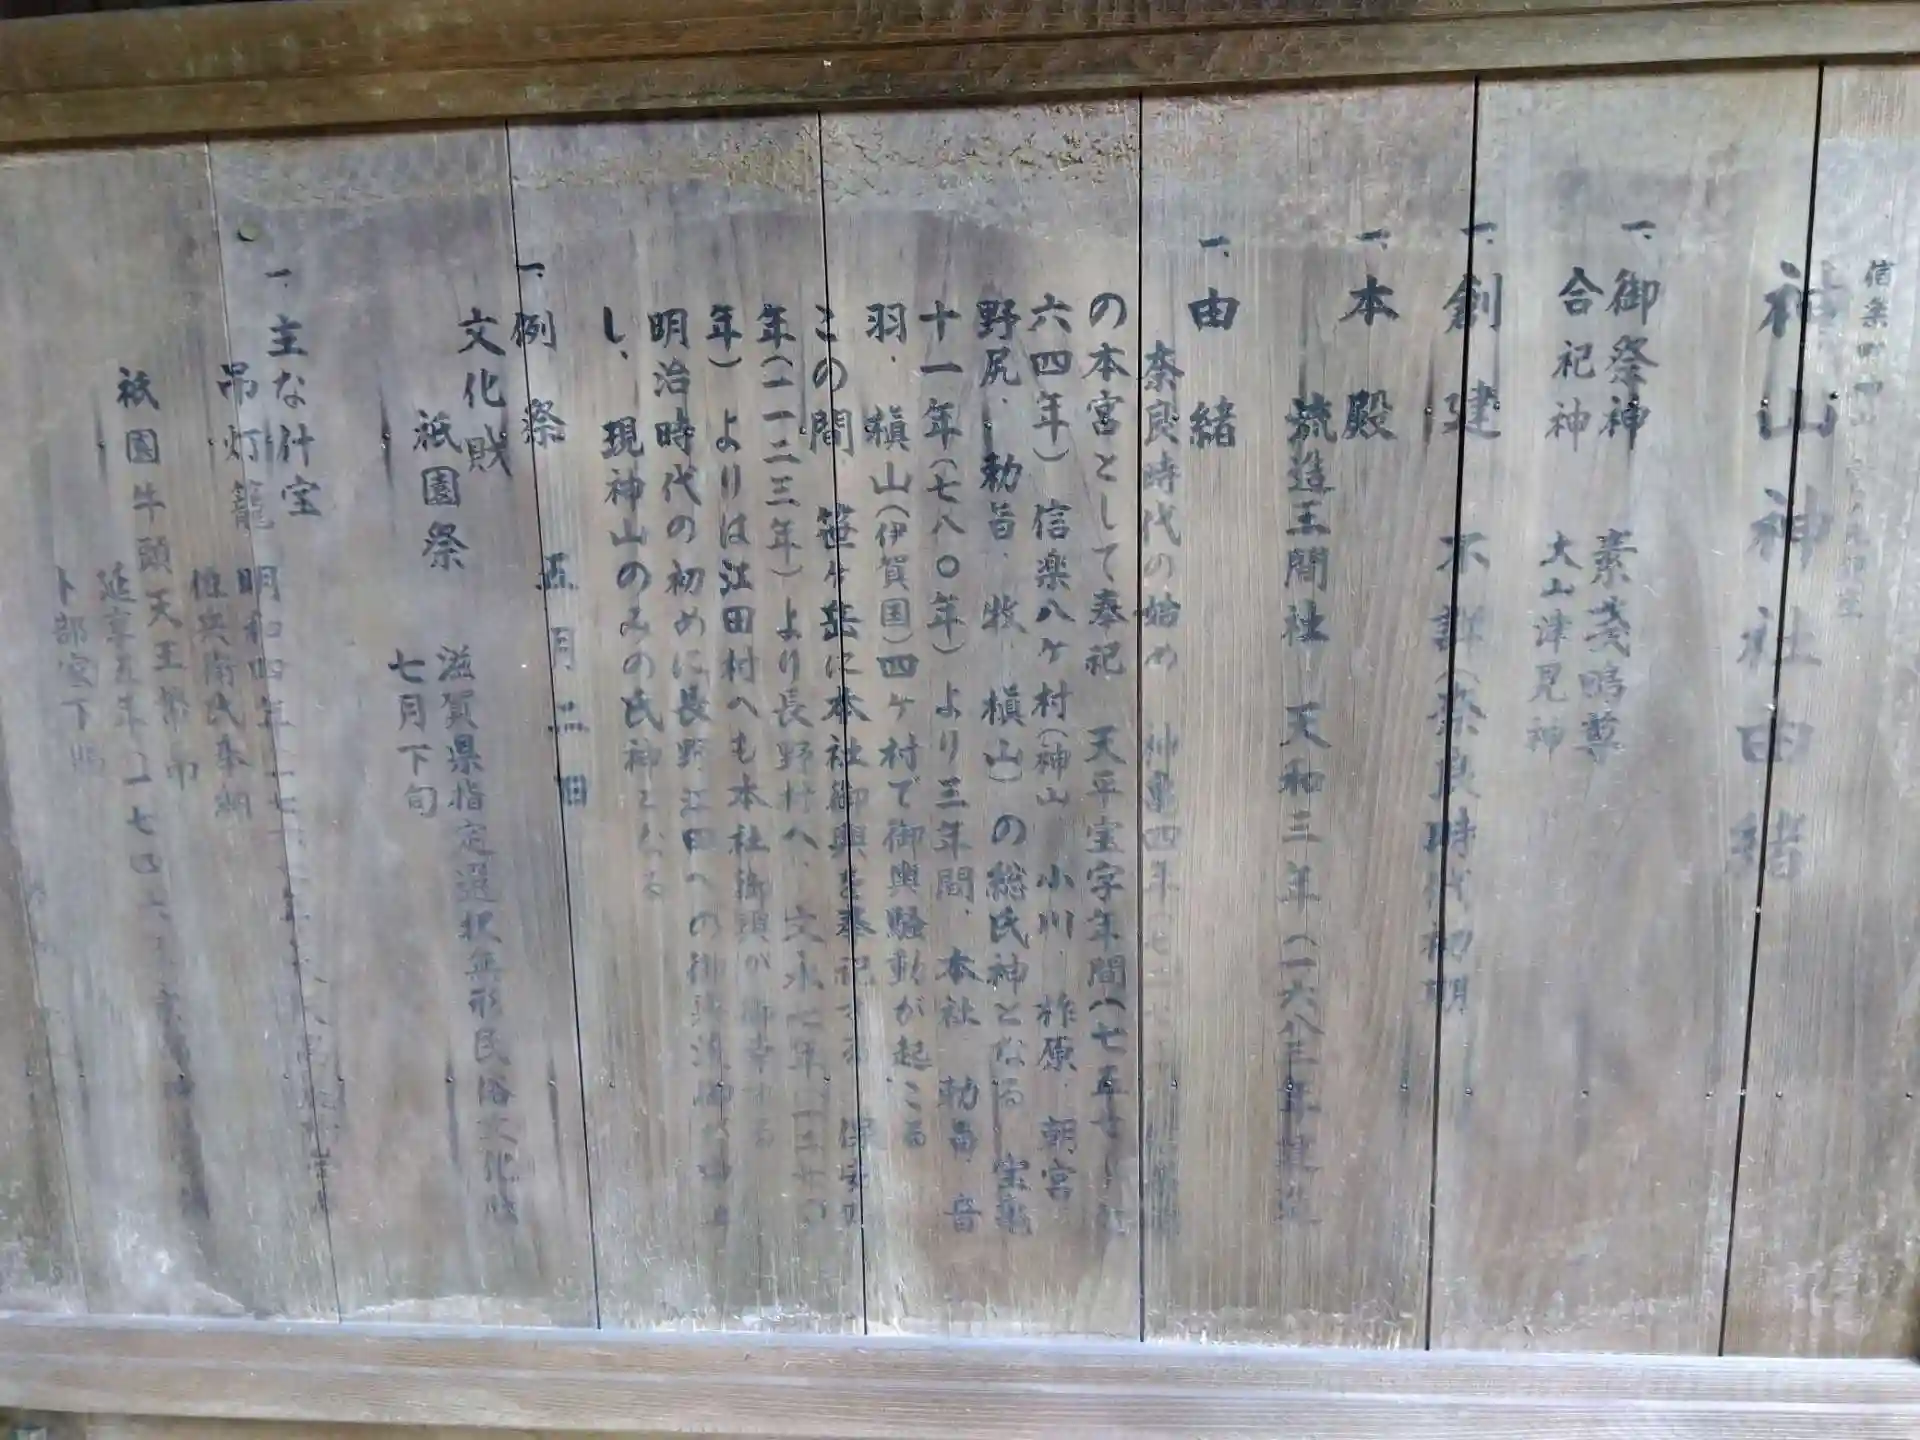 信楽町神山
神山神社由緒
一、御祭神　素戔嗚尊
合祀神　大山津見神
一、創建　不詳（奈良時代初期
一、本殿
流造三間社　天和三年（一六八三年建造
一、由緒
奈良時代の始め　神亀四年（七二七
の本宮として奉祀　天平宝字年間（七五七～
六四年）信楽八ヶ村（神山　小川、柞原、朝宮
野尻、勅旨、牧、槇山）の総氏神となる　宝亀
十一年（七八〇年）より三年間、本社　勅旨、音
羽、槇山（伊賀国）四ヶ村で御輿騒動が起こる
この間、笹ヶ岳に本社御輿を奉祀する　保安四
年（一一二三年）より長野村へ、文永七年（一二七〇
年）よりは江田村へも本社御輿が御幸する
明治時代の初めに長野江田への御輿渡御が中止
し、現神山のみの氏神となる
一、例祭　五月二四日
文化財
祇園祭　滋賀県指定選択無形民俗文化財
七月下旬
一、主な什宝
吊灯籠　明和四年
氏奉納
祇園牛頭天王幣帛
延享五年（一七四八
卜部宮下